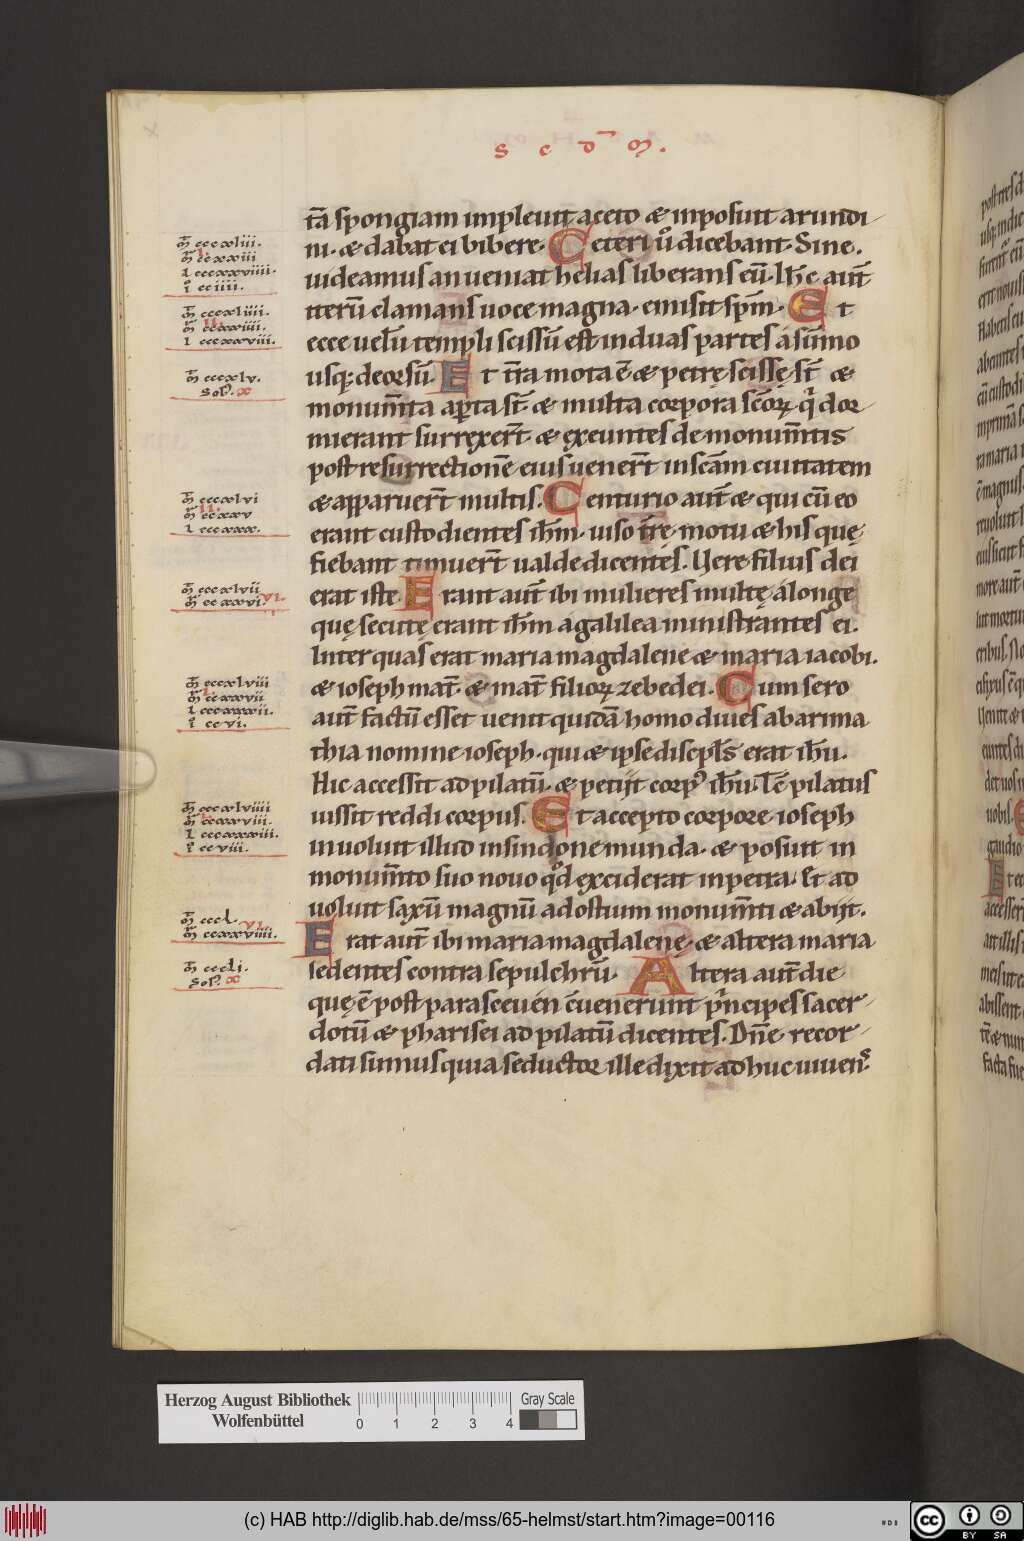 S C D̄ M.
tā spongiam impleuit aceto & inposuit arundi
ni. & dabat ei bibere. Ceteri u̅ dicebant. Sine.
uideamus an ueniat helias liberans eū. Ihc̄ aut̄
iterū clamans uoce magna. emisit spm̄. Et
ecce uelū templi scissū est in duas partes a sūmo
usq; deorsū. Et t̄ra mota ē & petrę scissę st̄ &
monum̄ta ap̄ta st̄. & multa corpora scōꝝ q̇ dor
mierant surrexer̄t. & exeuntes de monum̄tis
post resurrectionē eius uener̄t in scām ciuitatem
& apparuer̄t multis. Centurio aut̄ & qui cū eo
erant custodientes ih̄m. uiso t̄rę motu & his quę
fiebant timuer̄t ualde dicentes. Uere filius dei
erat iste. Erant aut̄ ibi mulieres multę a longe
quę secutę erant ih̄m a galilea ministrantes ei.
Inter quas erat maria magdalene & maria iacobi.
& ioseph mat̄. & mat̄ filioꝝ zebedei. Cum sero
aut̄ factū esset uenit quidā homo diues ab arima
thia nomine ioseph. qui & ipse discipl̄s erat ih̄u.
Hic accessit ad pilatū. & petijt corpꝰ ih̄u. Tē pilatus
iussit reddi corpus. Et accepto corpore ioseph
inuoluit illud in sindone munda. & posuit in
monum̄to suo nouo qd̄ exciderat in petra. Et ad
uoluit saxū magnū ad ostium monum̄ti & abijt.
Erat aut̄ ibi maria magdalenę. & altera maria
sedentes contra sepulchrū. Altera aut̄ die
quę ē post parasceuen c̄uenerunt p̄ncipes sacer
dotū & pharisei ad pilatū dicentes. Dn̄e recor
dati sumus quia seductor ille dixit adhuc uiuens̄
m̄ cccxliii.
I.
m̄ ccxxiii
l cccxxviiii.
i̅ cciiii.
m̄ cccxliiii.
II.
m̄ ccxxiiii.
l ccxxviii.
m̄ cccxlv.
Sol̄. X
m̄ cccxlvi
II.
m̄ ccxxv
l cccxxx.
m̄ cccxlvii
VI.
m̄ ccxxvi.
m̄ cccxlviii
I.
m̄ ccxxvii
l cccxxxii.
i̅ ccvi.
m̄ cccxlviiii
I.
m̄ ccxxviii.
l cccxxxiii.
i̅ ccviii.
m̄ cccl
VI.
m̄ ccxxviiii.
m̄ cccli.
Sol̄. X
Herzog August Bibliothek
Wolfenbüttel
0 1 2 3 4
Gray Scale
(c) HAB http://diglib.hab.de/mss/65-helmst/start.htm?image=00116
cc BY SA